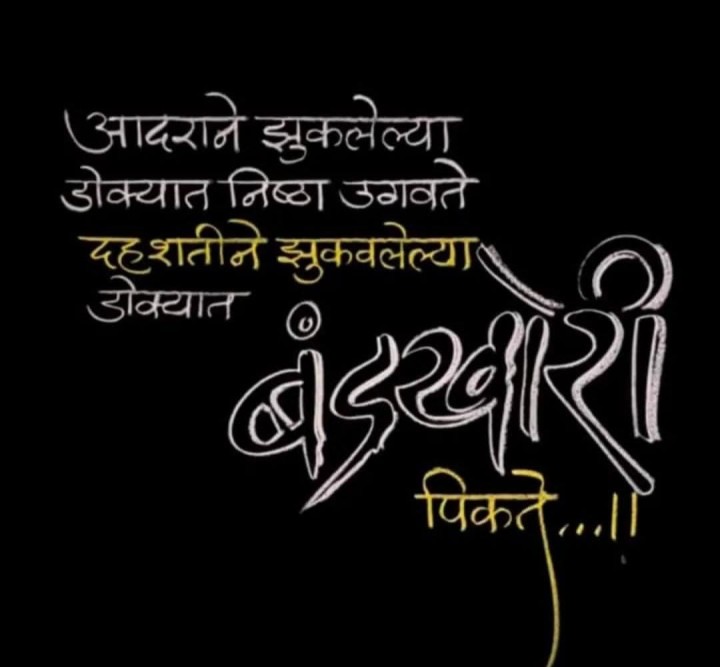 आदराने झुकलेल्या
डोक्यात निष्ठा उगवते
दहशतीने झुकवलेल्या
डोक्यात
बंडखोरी
पिकते...॥